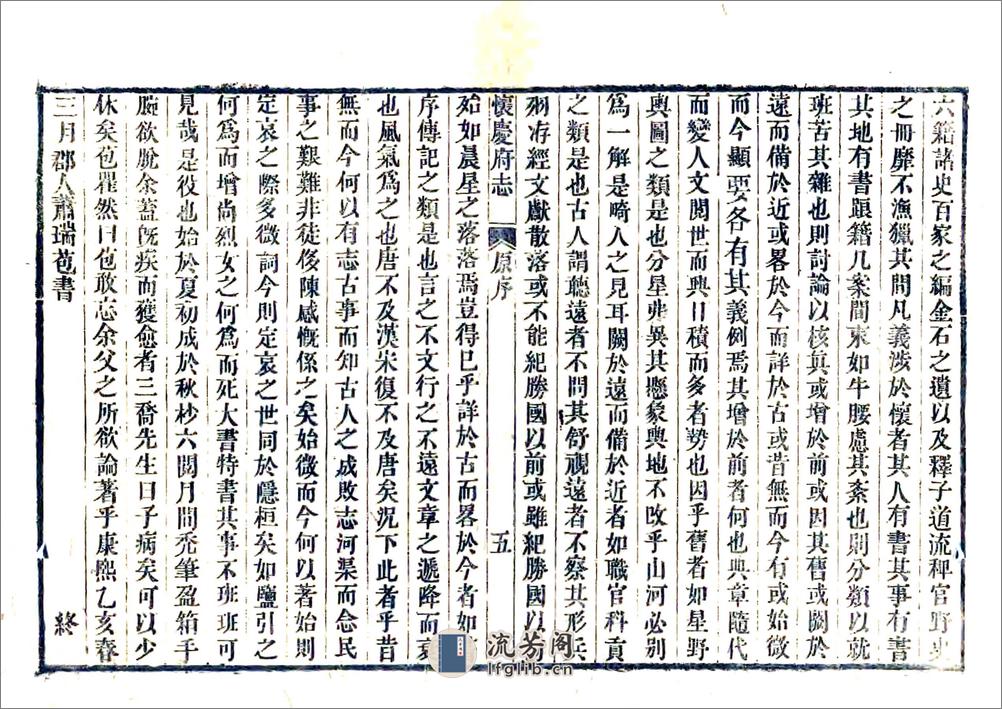 六籍諸史百家之編金石之遺以及釋子道流稗官野史
之冊靡不漁獵其間凡義涉於懷者其人有書其事有書
其地有書跟籍几案間束如牛腰慮其紊也則分類以就
班苦其雜也則討論以核真或增於前或因其舊或闕於
遠而備於近或畧於今而詳於古或昔無而今有或始微
而今顯要各有其義例焉其增於前者何也典章隨代
而變人文閱世而興日積而多者勢也因乎舊者如星野
輿圖之類是也分星弗異其懸象輿地不改乎山河必别
為一解是畸人之見耳闕於遠而備於近者如職官科貢
之類是也古人謂聽遠者不聞其舒視遠者不察其形兵
燹存經文獻散落或不能紀勝國以前或雖紀勝國以
懷慶府志 原序 五
始如晨星之落落焉豈得已乎詳於古而畧於今者如
序傳記之類是也言之不文行之不遠文章之遞降而衰
也風氣為之也唐不及漢宋復不及唐矣況下此者乎昔
無而今何以有志古事而知古人之成敗志河渠而念民
事之艱難非徒侈陳感慨係之矣始微而今何以著始則
定哀之際多微詞今則定哀之世同於隱桓矣如鹽引之
何為而增尚烈女之何為而死大書特書其事不班班可
見哉是役也始於夏初成於秋杪六閱月間禿筆盈箱手
腕欲脫余蓋旣疾而獲愈者三喬先生曰子病矣可以少
休矣苞瞿然曰苞敢志余父之所欲論著乎康熙乙亥春
三月郡人蕭瑞苞書
終
流芳阁
lfglib.cn